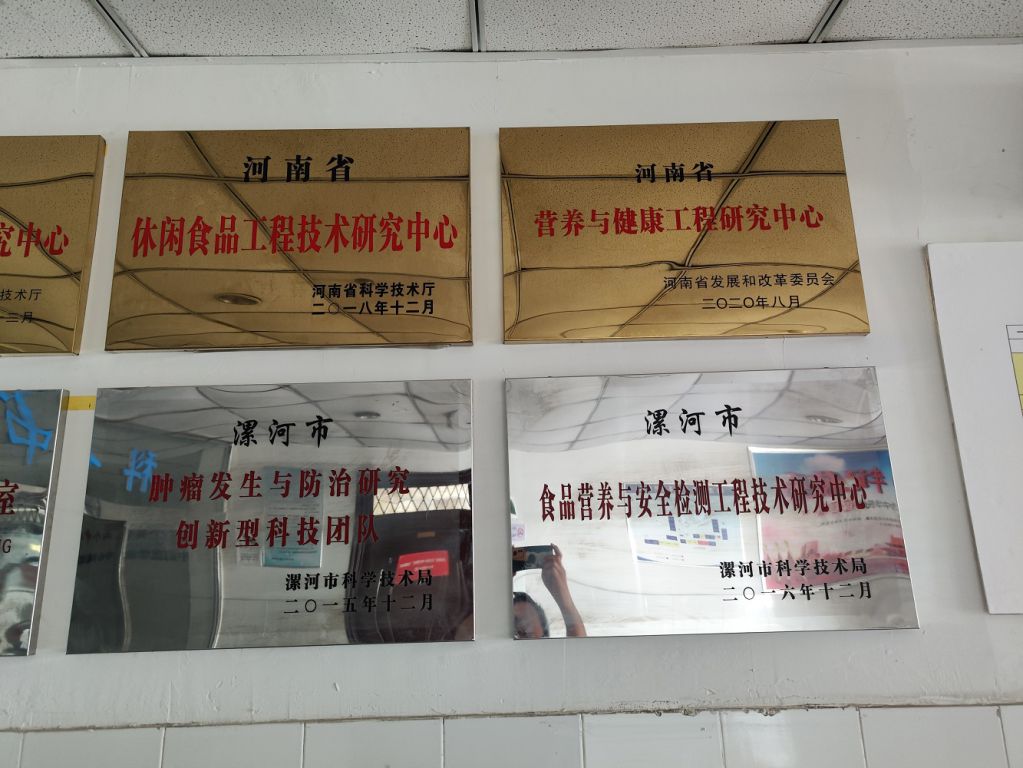 究中心
技术厅
二月
河南省
休闲食品工程技术研究中心
河南省科学技术厅
二〇一八年十二月
河南省
营养与健康工程研究中心
河南省发展和改革委员会
二〇二〇年八月
室
NG
漯河市
肿瘤发生与防治研究
创新型科技团队
漯河市科学技术局
二〇一五年十二月
漯河市
食品营养与安全检测工程技术研究中心
漯河市科学技术局
二〇一六年十二月